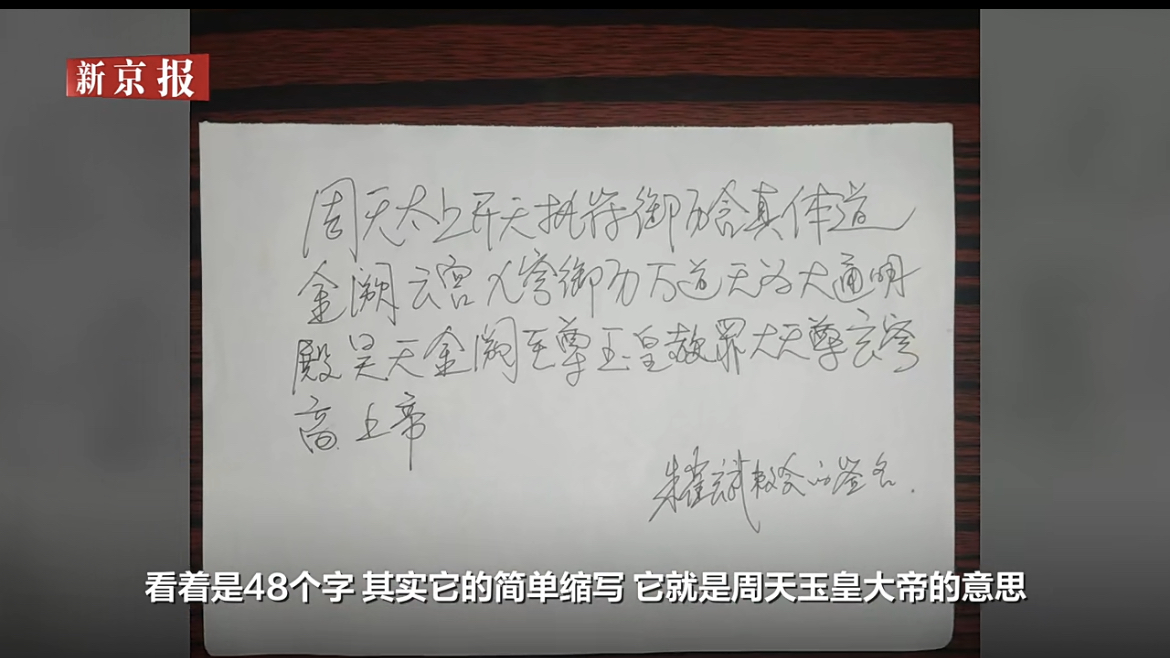 新京报
周天太上开天执符御历含真体道
金阙云宫九穹御历万道无为大通明
殿昊天金阙至尊玉皇赦罪大天尊玄穹
高上帝
朱 的签名.
看着是48个字 其实它的简单缩写 它就是周天玉皇大帝的意思